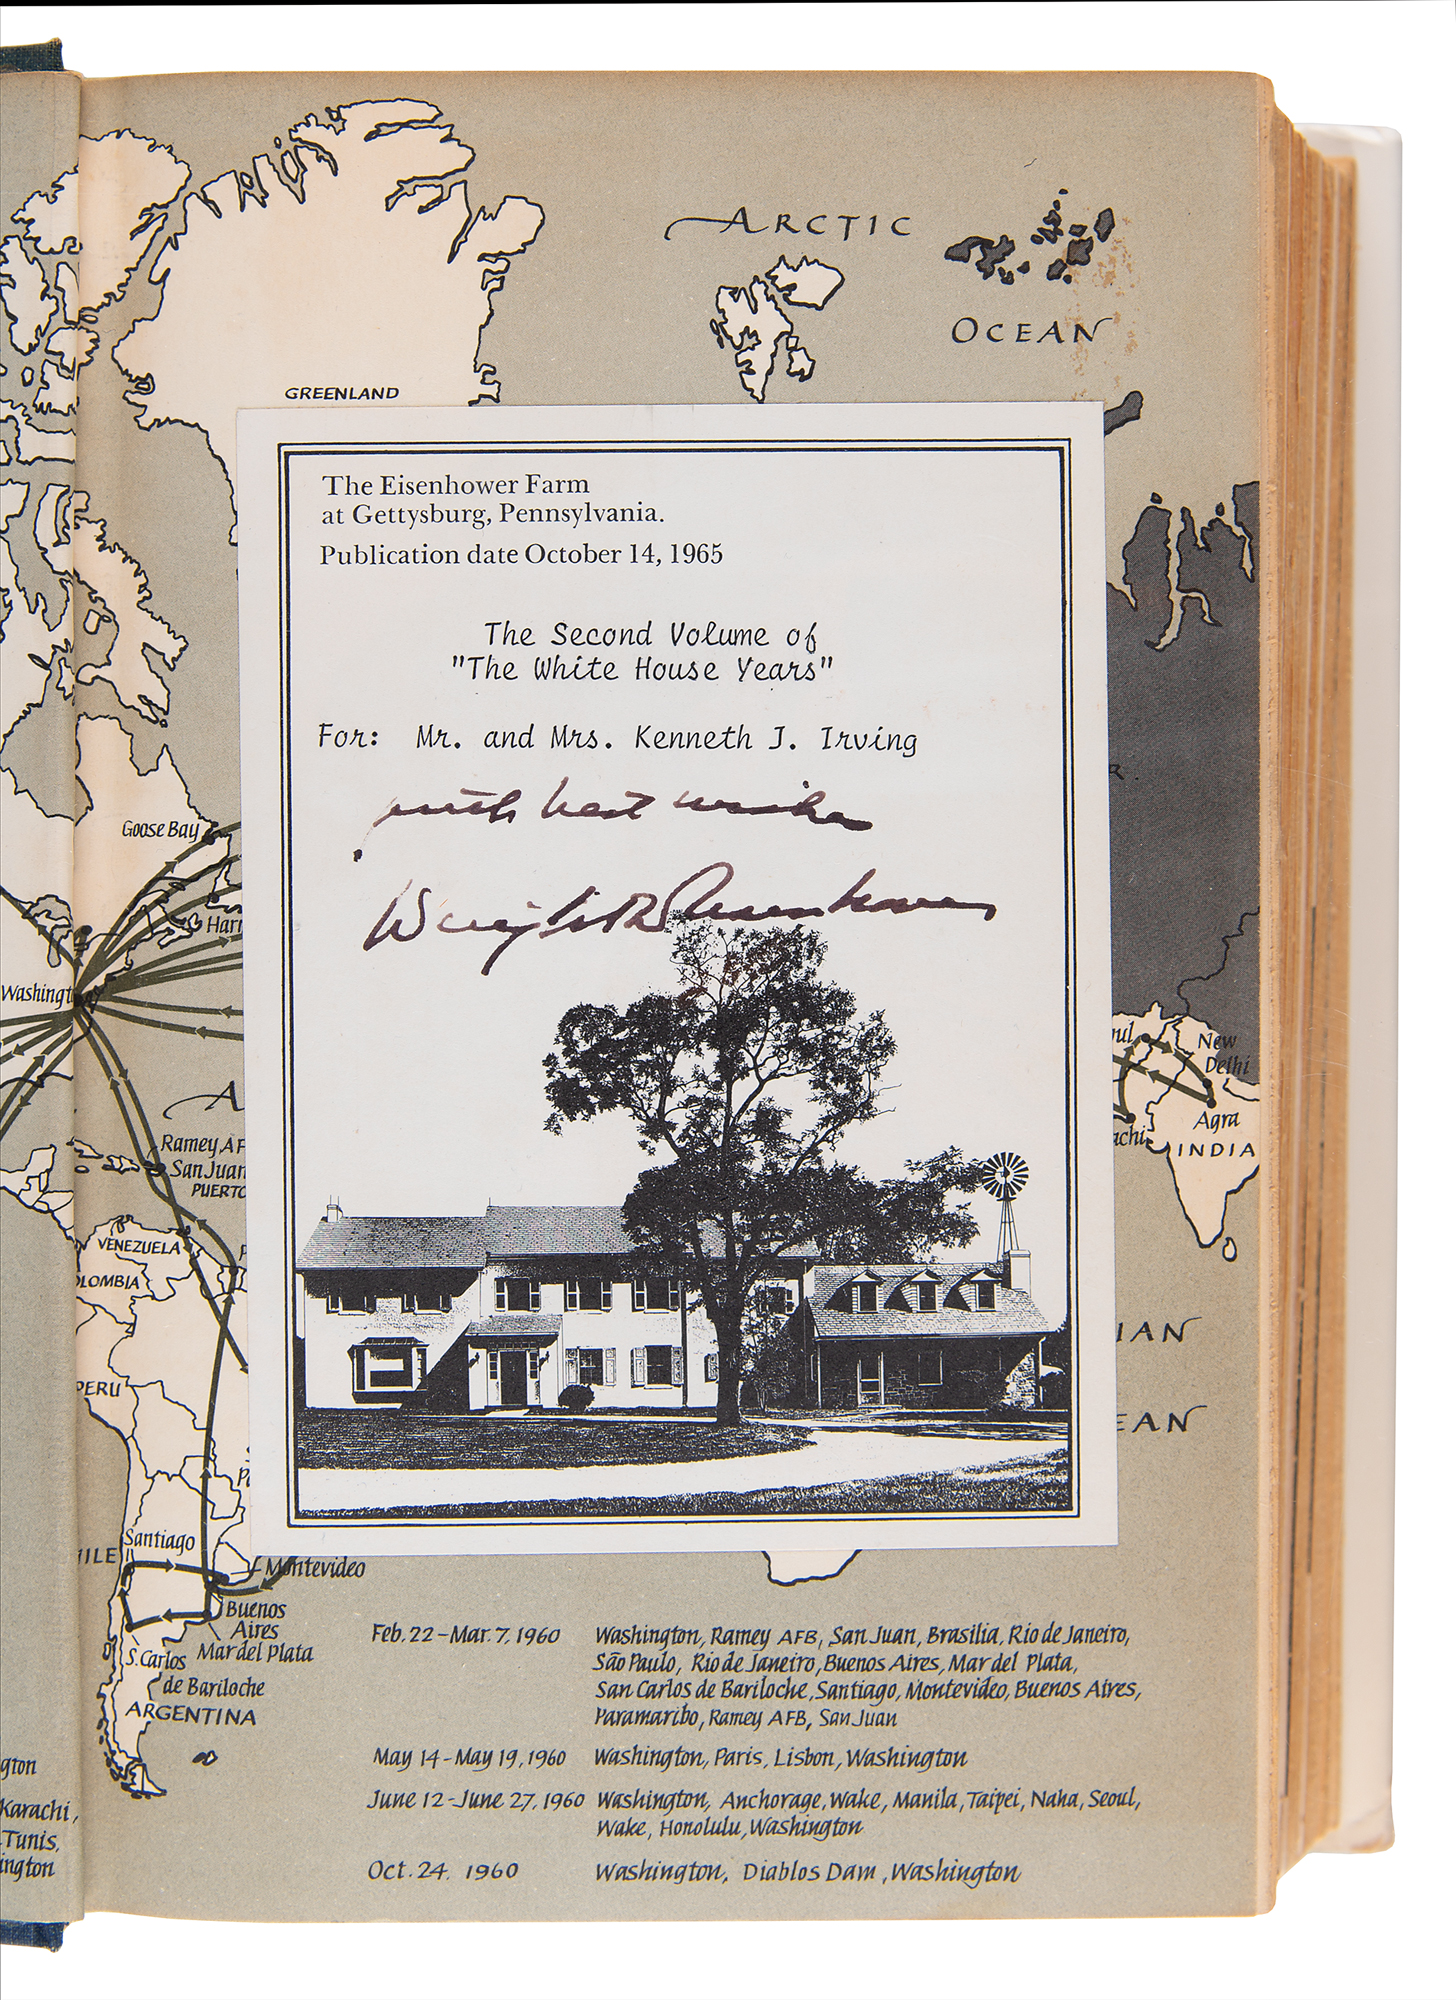 ARCTIC
OCEAN
GREENLAND
The Eisenhower Farm
at Gettysburg, Pennsylvania.
Publication date October 14, 1965
The Second Volume of
"The White House Years"
For: Mr. and Mrs. Kenneth J. Irving
with best wishes
Dwight D Eisenhower
Goose Bay
Harm
Washingt
Ramey AF
San Juan
PUERTO
VENEZUELA
OLOMBIA
PERU
Santiago
HILE
Montevideo
Buenos
Aires
Mar del Plata
S. Carlos
de Bariloche
ARGENTINA
New
Delhi
Agra
achi
INDIA
IAN
EAN
Feb. 22–Mar. 7, 1960 Washington, Ramey AFB, San Juan, Brasilia, Rio de Janeiro,
São Paulo, Rio de Janeiro, Buenos Aires, Mar del Plata,
San Carlos de Bariloche, Santiago, Montevideo, Buenos Aires,
Paramaribo, Ramey AFB, San Juan
May 14–May 19, 1960 Washington, Paris, Lisbon, Washington
June 12–June 27, 1960 Washington, Anchorage, Wake, Manila, Taipei, Naha, Seoul,
Wake, Honolulu, Washington
Oct. 24, 1960 Washington, Diablos Dam, Washington
gton
Karachi,
Tunis,
ington